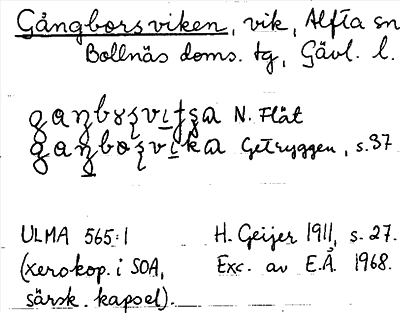 Gångborsviken, vik, Alfta sn
Bollnäs doms. tg, Gävl. l.
N. Flåt
Getryggen, s. 37
ULMA 565:1 H. Geijer 1911, s. 27.
(xerokop. i SOA, Exc. av E.Å. 1968.
särsk. kapsel).